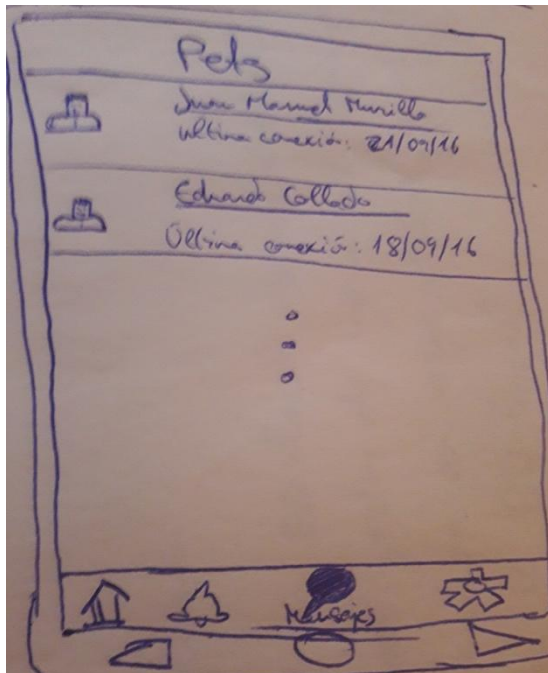 Pets
Juan Manuel Murillo
Ultima conexión: 21/09/16
Eduardo Collado
Última conexión: 18/09/16
Mensajes